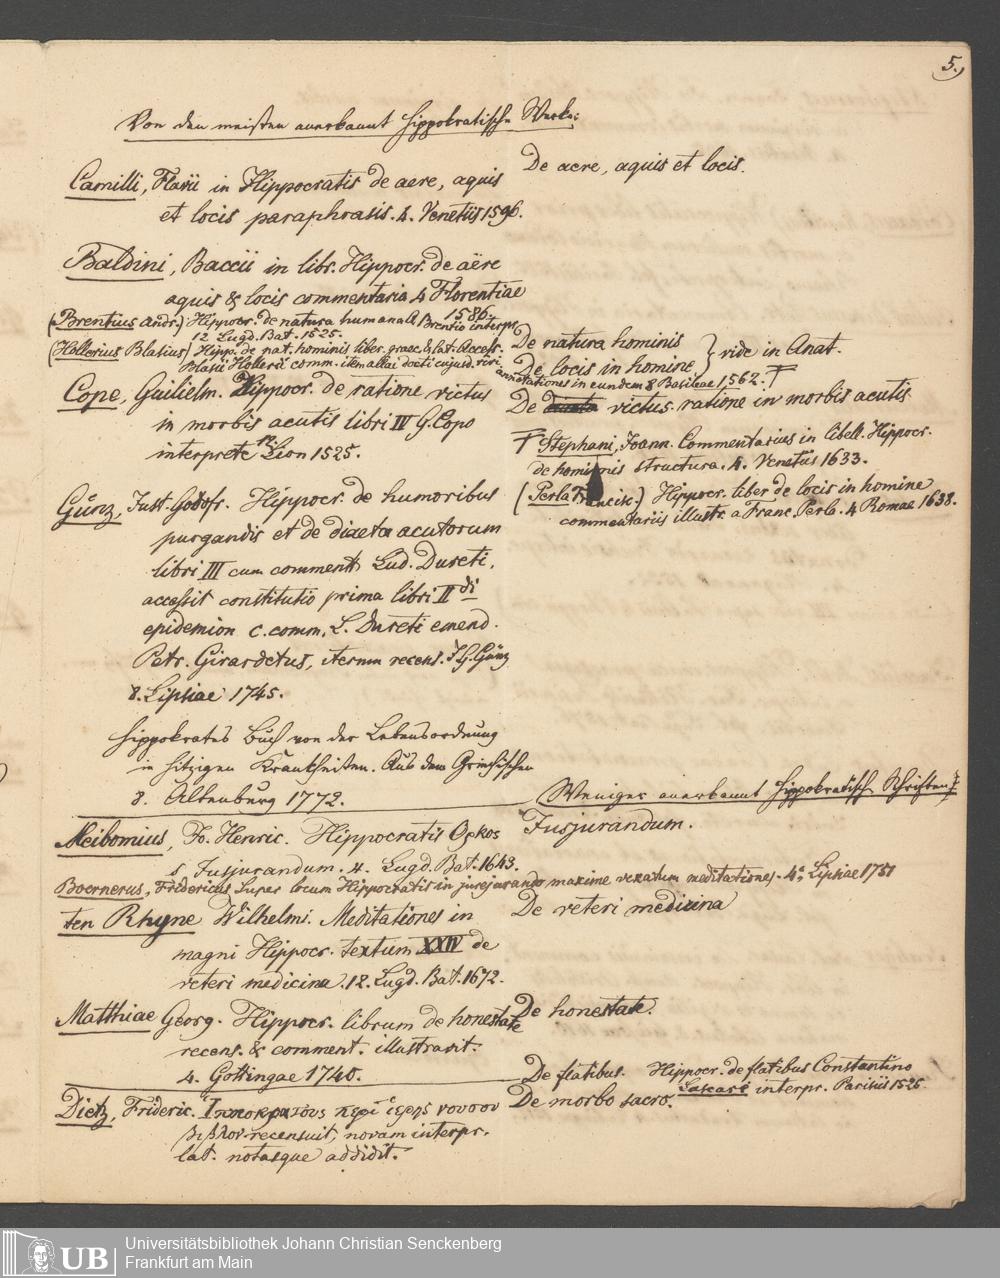 5.)
Von den meisten anerkannt Hippokratische Werke:
De aere, aquis et locis.
Camilli, Flavii in Hippocratis de aere, aquis
et locis paraphrasis. 4. Venetiis 1596.
Baldini, Baccii in libr. Hippocr. de aëre
aquis & locis commentaria 4 Florentiae
1586.
(Brentius Andr.) Hippocr. de natura humana A Brentio interpr.
12 Lugd. Bat. 1525.
(Hollerius Blasius) Hipp. de nat. hominis liber graec. & lat. Access.
Blasii Hollerii comm. item alia docti cujusd. viri
annotationes in eundem 8 Basileae 1562. Ŧ
De natura hominis
De locis in homine } vide in Anat.
Cope, Guilielm. Hippocr. de ratione victus
in morbis acutis libri IV G. Copo
interprete 12. Lion 1525.
De victus ratione in morbis acutis
Ŧ Stephani, Joann. Commentarius in libell. Hippocr.
de hominis structura. 4. Venetiis 1633.
(Perla Francisc.) Hippocr. liber de locis in homine
commentariis illustr. a Franc. Perla. 4 Romae 1638.
Günz, Just. Godofr. Hippocr. de humoribus
purgandis et de diaeta acutorum
libri III cum comment. Lud. Dureti,
accessit constitutio prima libri II di
epidemion c. comm. L. Dureti emend.
Petr. Girardetus, iterum recens. J G. Günz
8. Lipsiae 1745.
Hippokrates Buch von der Lebensordnung
in hitzigen Krankheiten. Aus dem Griechischen
8. Altenburg 1772.
Weniger anerkannt Hippokratisch Schriften:
Meibomius, Jo. Henric. Hippocratis Ορκος
s. Jusjurandum. 4. Lugd. Bat. 1643.
Jusjurandum.
Boernerus, Fridericus Super locum Hippocratis in jurejurando maxime vexatum meditationes. 4º, Lipsiae 1751
ten Rhyne Wilhelmi. Meditationes in
magni Hippocr. textum XXIV de
veteri medicina. 12. Lugd. Bat. 1672.
De veteri medicina
Matthiae Georg. Hippocr. librum de honestate
recens. & comment. illustravit.
4. Gottingae 1740.
De honestate.
De flatibus. Hippocr. de flatibus Constantino
Lascari interpr. Parisiis 1525.
Dietz, Frideric. Ἱπποκρατους περι ἱερης νουσου
βιβλον recensuit, novam interpr.
lat. notasque addidit.
De morbo sacro.
UB Universitätsbibliothek Johann Christian Senckenberg
Frankfurt am Main